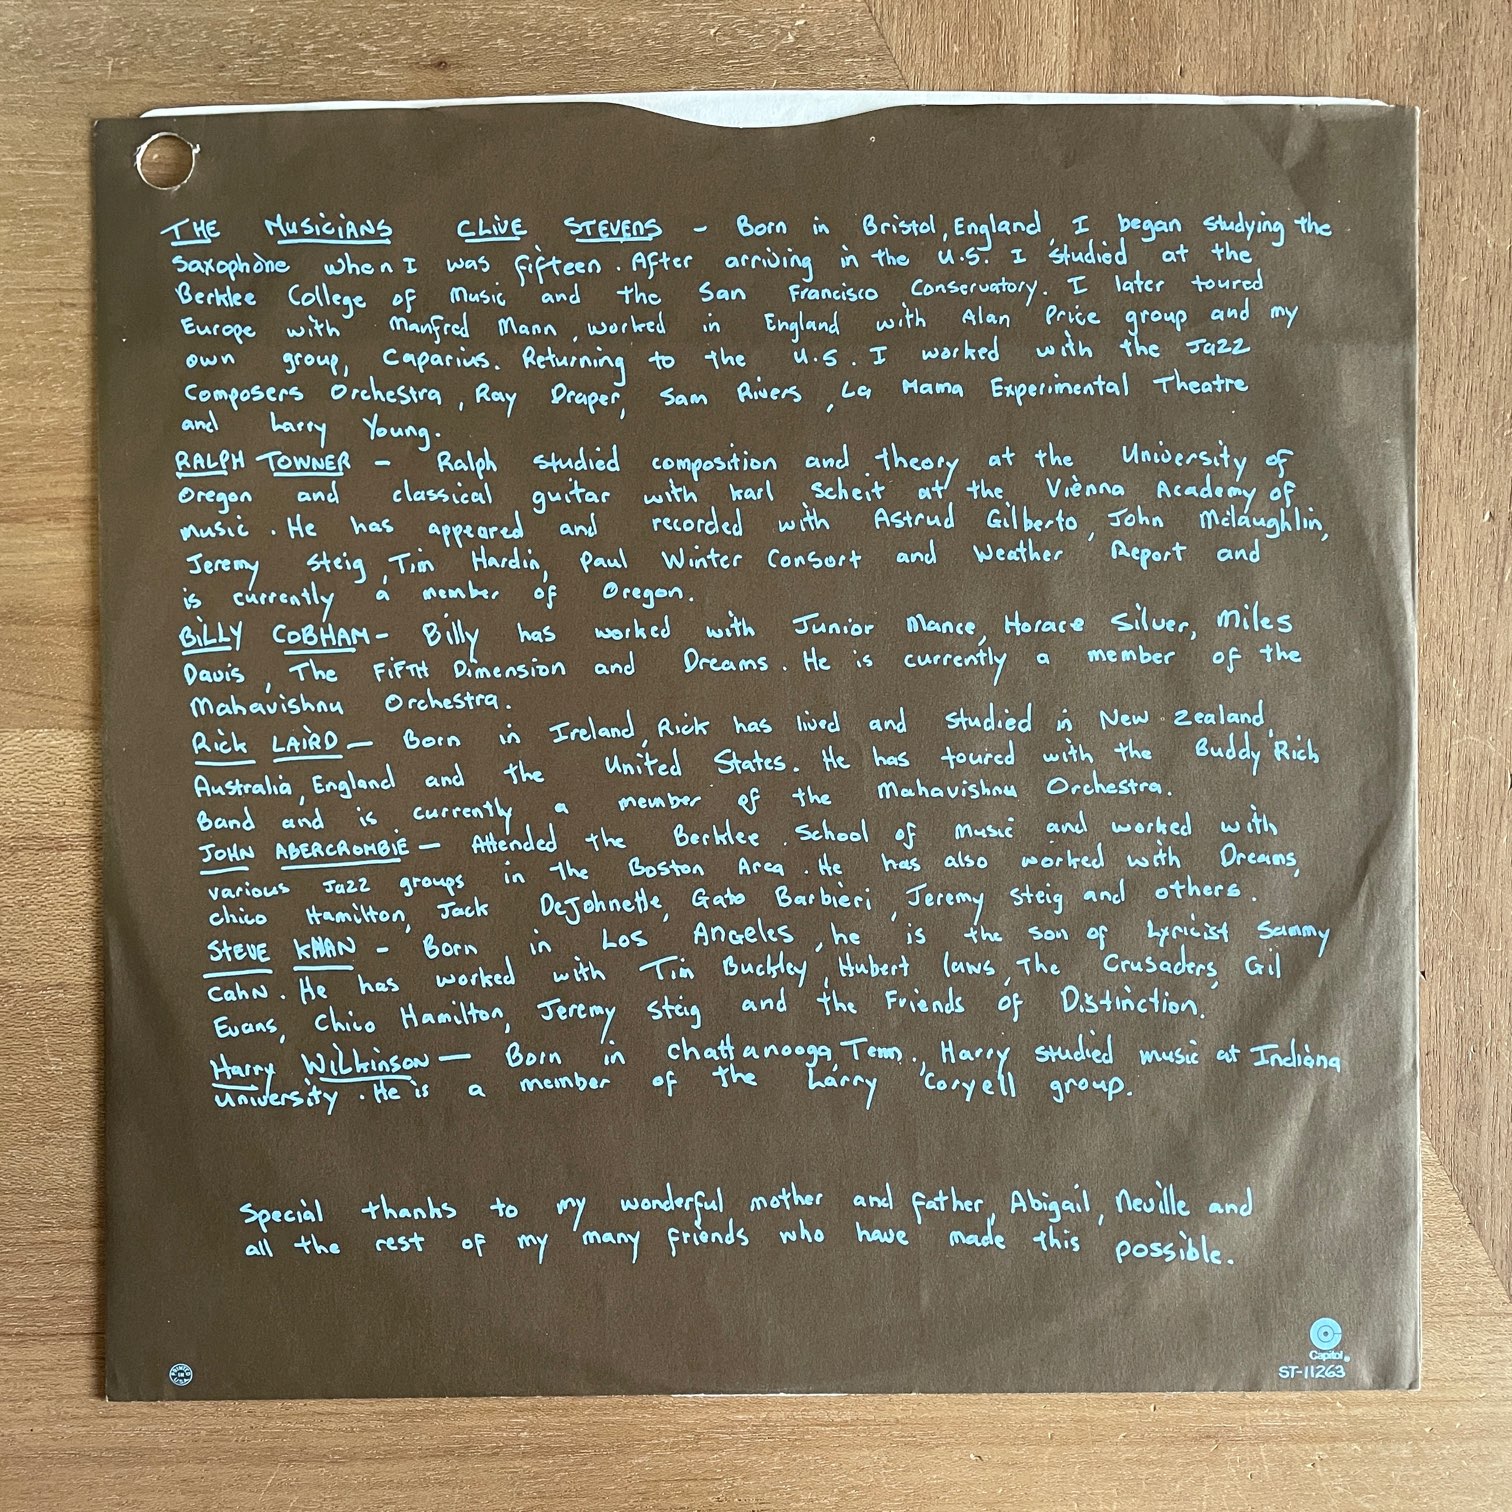 THE MUSICIANS CLIVE STEVENS - Born in Bristol, England, I began studying the
saxophone when I was fifteen. After arriving in the U.S. I studied at the
Berklee College of Music and the San Francisco Conservatory. I later toured
Europe with Manfred Mann, worked in England with Alan Price group and my
own group, Caparius. Returning to the U.S. I worked with the Jazz
Composers Orchestra, Ray Draper, Sam Rivers, La Mama Experimental Theatre
and Larry Young.
RALPH TOWNER - Ralph studied composition and theory at the University of
Oregon and classical guitar with Karl Scheit at the Vienna Academy of
music. He has appeared and recorded with Astrud Gilberto, John McLaughlin,
Jeremy Steig, Tim Hardin, Paul Winter Consort and Weather Report and
is currently a member of Oregon.
BILLY COBHAM - Billy has worked with Junior Mance, Horace Silver, Miles
Davis, The FIFTH Dimension and Dreams. He is currently a member of the
Mahavishnu Orchestra.
Rick LAIRD - Born in Ireland, Rick has lived and studied in New Zealand,
Australia, England and the United States. He has toured with the Buddy Rich
Band and is currently a member of the Mahavishnu Orchestra.
JOHN ABERCROMBIE - Attended the Berklee School of Music and worked with
various Jazz groups in the Boston Area. He has also worked with Dreams,
Chico Hamilton, Jack DeJohnette, Gato Barbieri, Jeremy Steig and others.
STEVE KHAN - Born in Los Angeles, he is the son of Lyricist Sammy
Cahn. He has worked with Tim Buckley, Hubert Laws, The Crusaders, Gil
Evans, Chico Hamilton, Jeremy Steig and the Friends of Distinction.
Harry Wilkinson - Born in Chattanooga, Tenn., Harry studied music at Indiana
University. He is a member of the Larry Coryell group.
Special thanks to my wonderful mother and father, Abigail, Neville and
all the rest of my many friends who have made this possible.
Capitol®
ST-11263
PRINTED IN U.S.A.